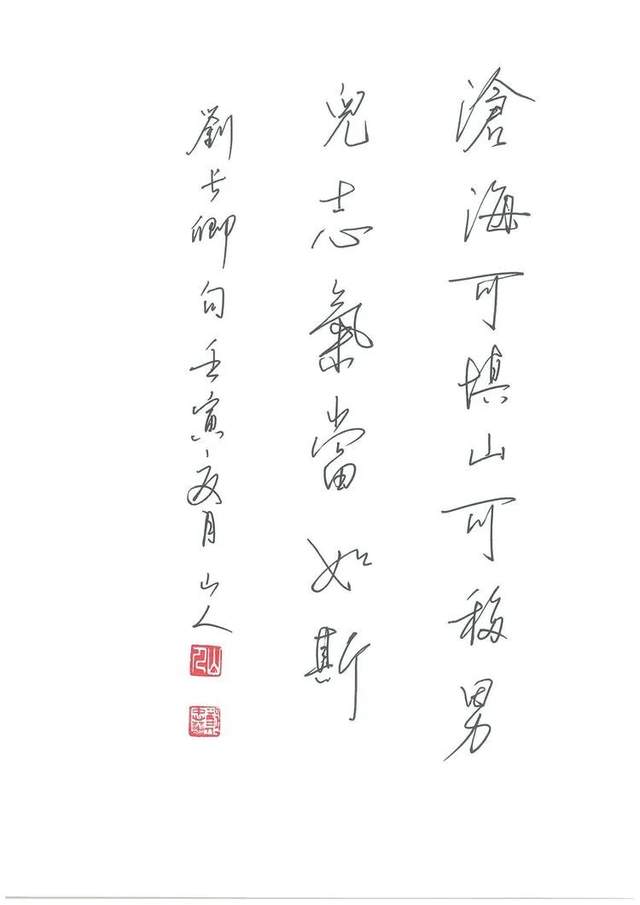 滄海可填山可移男
兒志氣當如斯
劉长卿句壬寅夏月山人
山人